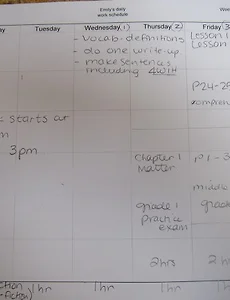 Emily's daily
work schedule
Tuesday
Wednesday 1)
Thursday 2)
Friday 3
- Vocab-definitions
- do one write-up
- make sentences
including 4W1H
Lesson 1
Lesson
P24-25
comprehen
starts at
3pm
Chapter 1
Matter
P 1-3
grade 1
practice
exam
middle
grade
2hrs
2 h
1hr
1hr
1hr
1hr